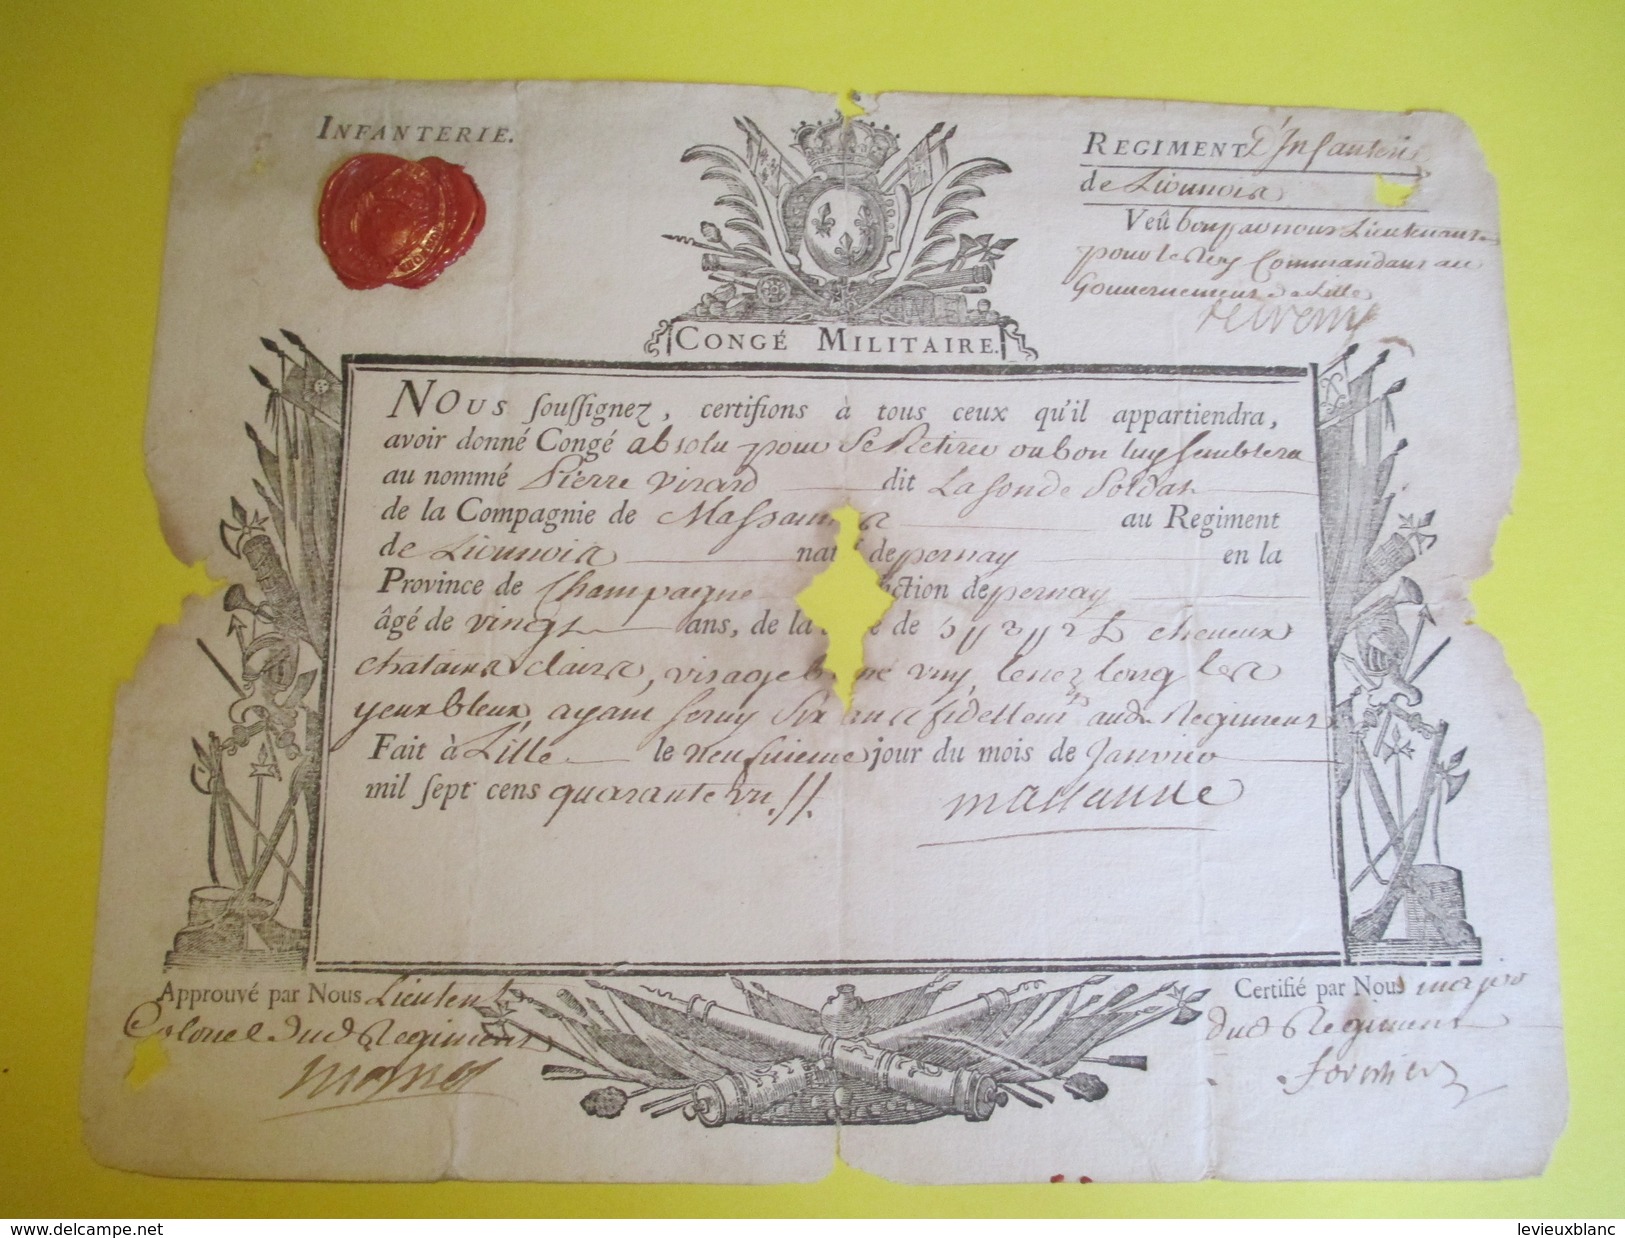 INFANTERIE.
REGIMENT D'Infanterie
de Lionnois
Veû bon par nous Lieutenant
pour le Roy Commandant au
Gouvernement de Lille
CONGÉ MILITAIRE.
NOUS soussignez, certifions à tous ceux qu'il appartiendra,
avoir donné Congé absolu pour Se Retirer ou bon luy Semblera
au nommé Pierre Virard dit La Sonde Soldat
de la Compagnie de au Regiment
de Lionnois natif depernay en la
Province de Champagne ction depernay
âgé de vingt ans, de la de cheveux
chatains clairs, visage uny, le nez long les
yeux bleux, ayant servy Six ans fidellemt. audt. Regiment
Fait à Lille le neufvieme jour du mois de Janvier
mil sept cens quarante un //.
massanne
Approuvé par Nous Lieutent
Colonel dud Regiment
Certifié par Nous major
dud Regiment
levieuxblanc
www.delcampe.net